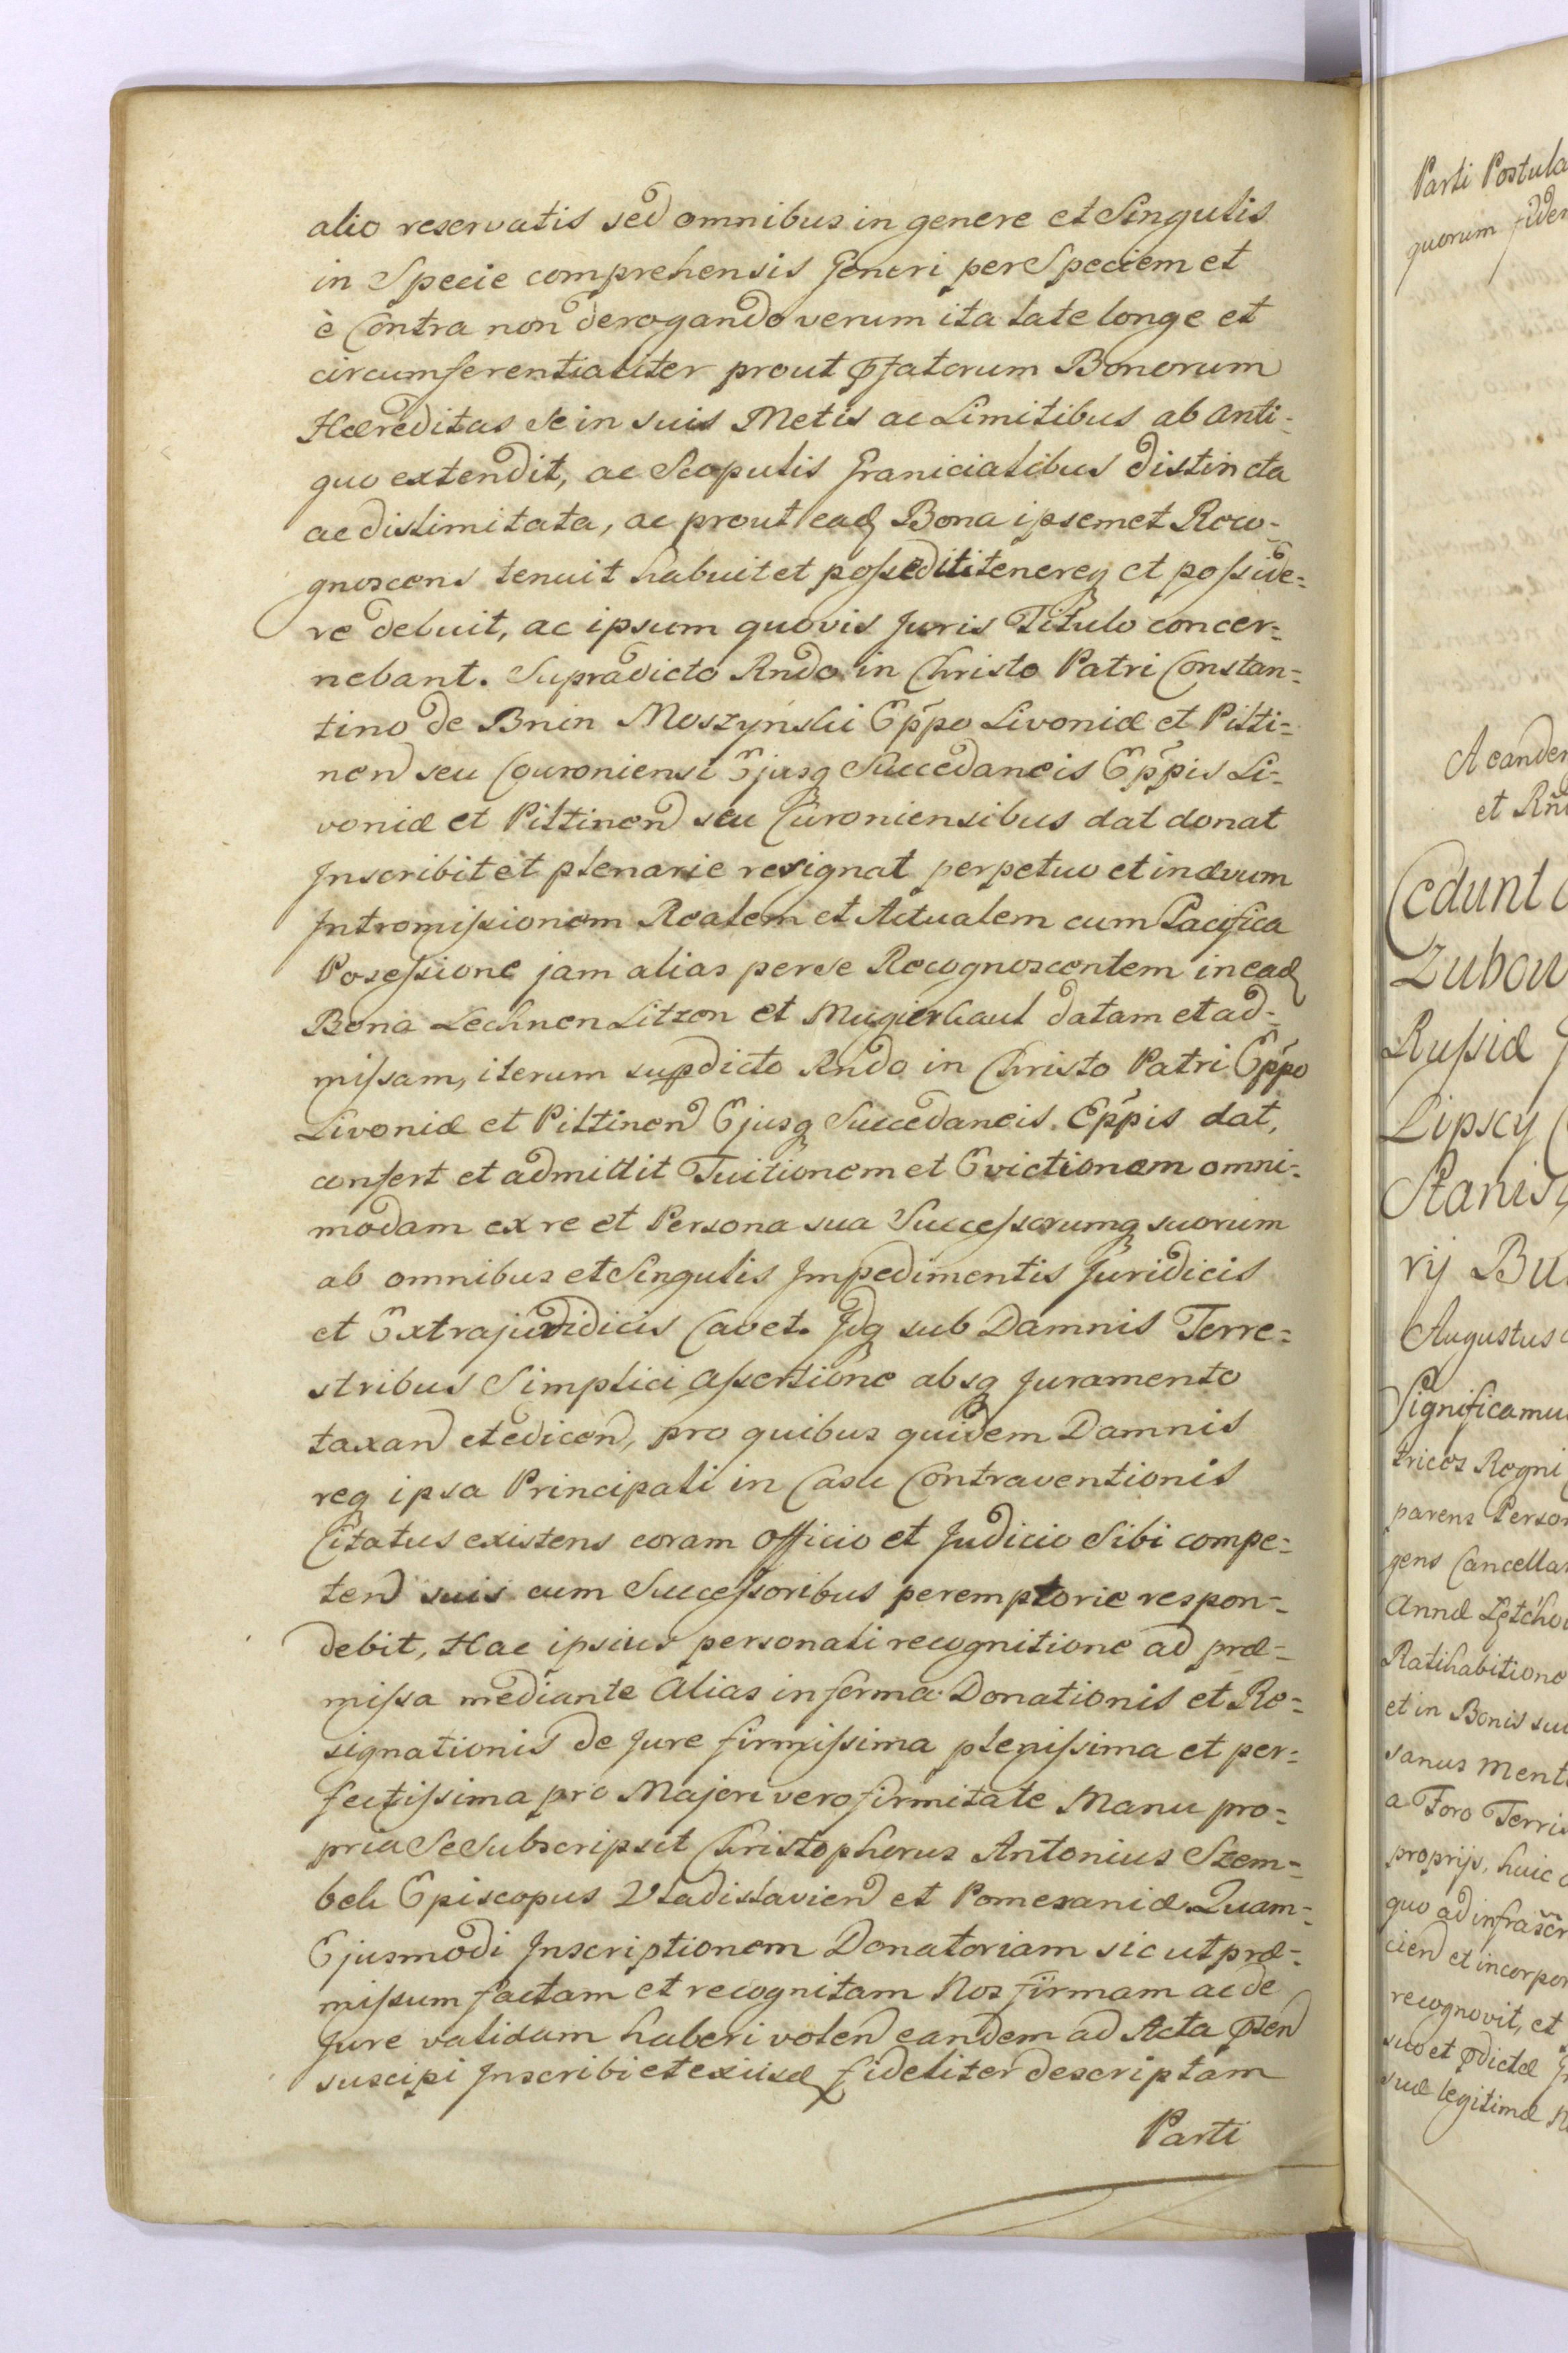 alio reservatis sed omnibus in genere et Singulis
in Specie comprehensis Generi per Speciem et
è Contra non derogando verum ita late longe et
circumferentialiter prout pfatorum Bonorum
Hæreditas se in suis Metis ac Limitibus ab anti-
quo extendit, ac Scopulis Graniciatibus distincta
ac dislimitata, ac prout ead Bona ipsemet Reco-
gnoscens tenuit habuit et possedit tenereq et posside=
re debuit, ac ipsum quovis Juris Titulo concer=
nebant. Supradicto Rndo in Christo Patri Constan=
tino de Bnin Moszyński Eppo Livoniæ et Pilti=
nen seu Curoniensi Ejusq Succedaneis Eppis Li-
voniæ et Piltinen seu Curoniensibus dat donat
Inscribit et plenarie resignat perpetuo et in ævum
Intromissionem Realem et Actualem cum Pacifica
Posessione jam alias per se Recognoscentem in ead
Bona Lechnen Litzen et Mugierkaul datam et ad-
missam, iterum supdicto Rndo in Christo Patri Eppo
Livoniæ et Piltinen Ejusq Succedaneis Eppis dat,
confert et admittit Tuitionem et Evictionem omni-
modam ex re et Persona sua Successorumq suorum
ab omnibus et Singulis Impedimentis Juridicis
et Extrajuridicis Cavet. Idq sub Damnis Terre=
stribus Simplici assertione absq Juramento
taxan et edicen, pro quibus quidem Damnis
req ipsa Principali in Casu Contraventionis
Citatus existens coram officio et Judicio Sibi compe=
ten suis cum Successoribus peremptorie respon-
debit, Hac ipsius personali recognitione ad præ-
missa mediante alias in forma Donationis et Re=
signationis de Jure firmissima plenissima et per=
fectissima pro Majori vero firmitate Manu pro=
pria Se Subscripsit Christophorus Antonius Szem=
bek Episcopus Vladislavien et Pomeraniæ. Quam=
Ejusmodi Inscriptionem Donatoriam sic ut præ=
missum factam et recognitam Nos firmam ac de
Jure validam haberi volen eandem ad Acta psen
suscipi Inscribi et ex iisd fideliter descriptam
Parti
Parti Postula
quorum fidem
A eandem
et Rñ
Cedunt
Zubow
Russiæ
Lipscy
Stanis
rij Bu
Augustus
Significamu
trices Regni
parens Person
gens Cancellar
Annæ
Ratihabitione
et in Bonis sui
sanus Ment
a Foro Terris
proprijs, huic
quo ad infrascr
cien et incorpor
recognovit, et
suo et pdictæ
suæ legitimæ